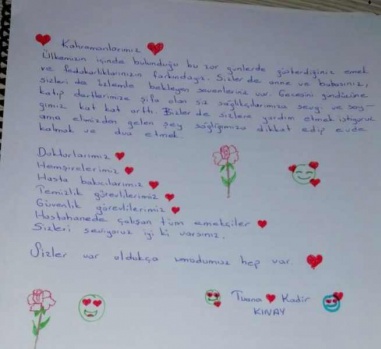 Kahramanlarımız
Ülkemizin içinde bulunduğu bu zor günlerde gösterdiğiniz emek
ve fedakarlıklarınızın farkındayız. Sizler de anne ve babasınız,
sizleri de bekleyen sevenleriniz var. Gecesini gündüzüne
katıp dertlerimize şifa olan siz sağlıkçılarımıza sevgi ve say-
gımız kat kat arttı. Bizler de sizlere yardım etmek istiyoruz
ama elimizden gelen şey sağlığımıza dikkat edip evde
kalmak ve dua etmek.
Doktorlarımız
Hemşirelerimiz
Hasta bakıcılarımız
Temizlik görevlilerimiz
Güvenlik görevlilerimiz
Hastahanede çalışan tüm emekçiler
Sizleri seviyoruz iyi ki varsınız.
Sizler var oldukça umudumuz hep var.
Kadir
KINAY